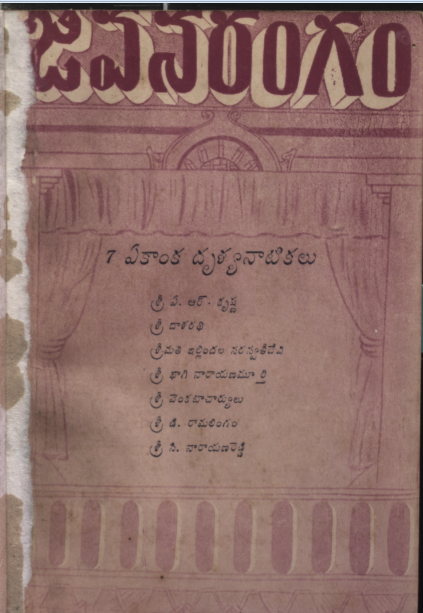 జీవనరంగం
7 ఏకాంక దృశ్యనాటికలు
శ్రీ ఏ. ఆర్. కృష్ణ
శ్రీ దాశరథి
శ్రీమతి ఇల్లిందల సరస్వతీదేవి
శ్రీ భాగి నారాయణమూర్తి
శ్రీ వెంకటాచార్యులు
శ్రీ డి. రామలింగం
శ్రీ సి. నారాయణరెడ్డి